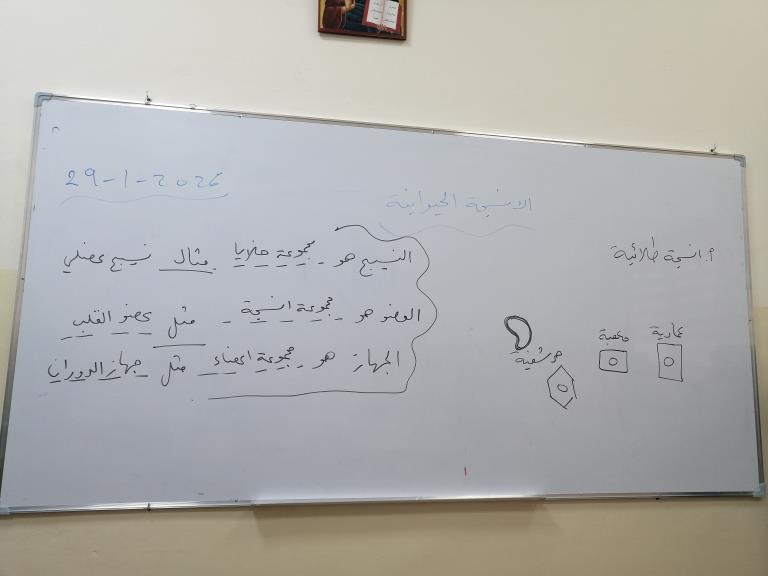 29-1-2026
الانسجة الحيوانية
النسيج هو مجموعة خلايا مثال نسيج عضلي
العضو هو مجموعة انسجة مثل عضو القلب
الجهاز هو مجموعة اعضاء مثل جهاز الدوران
أ. انسجة طلائية
عمادية
مكعبة
حرشفية